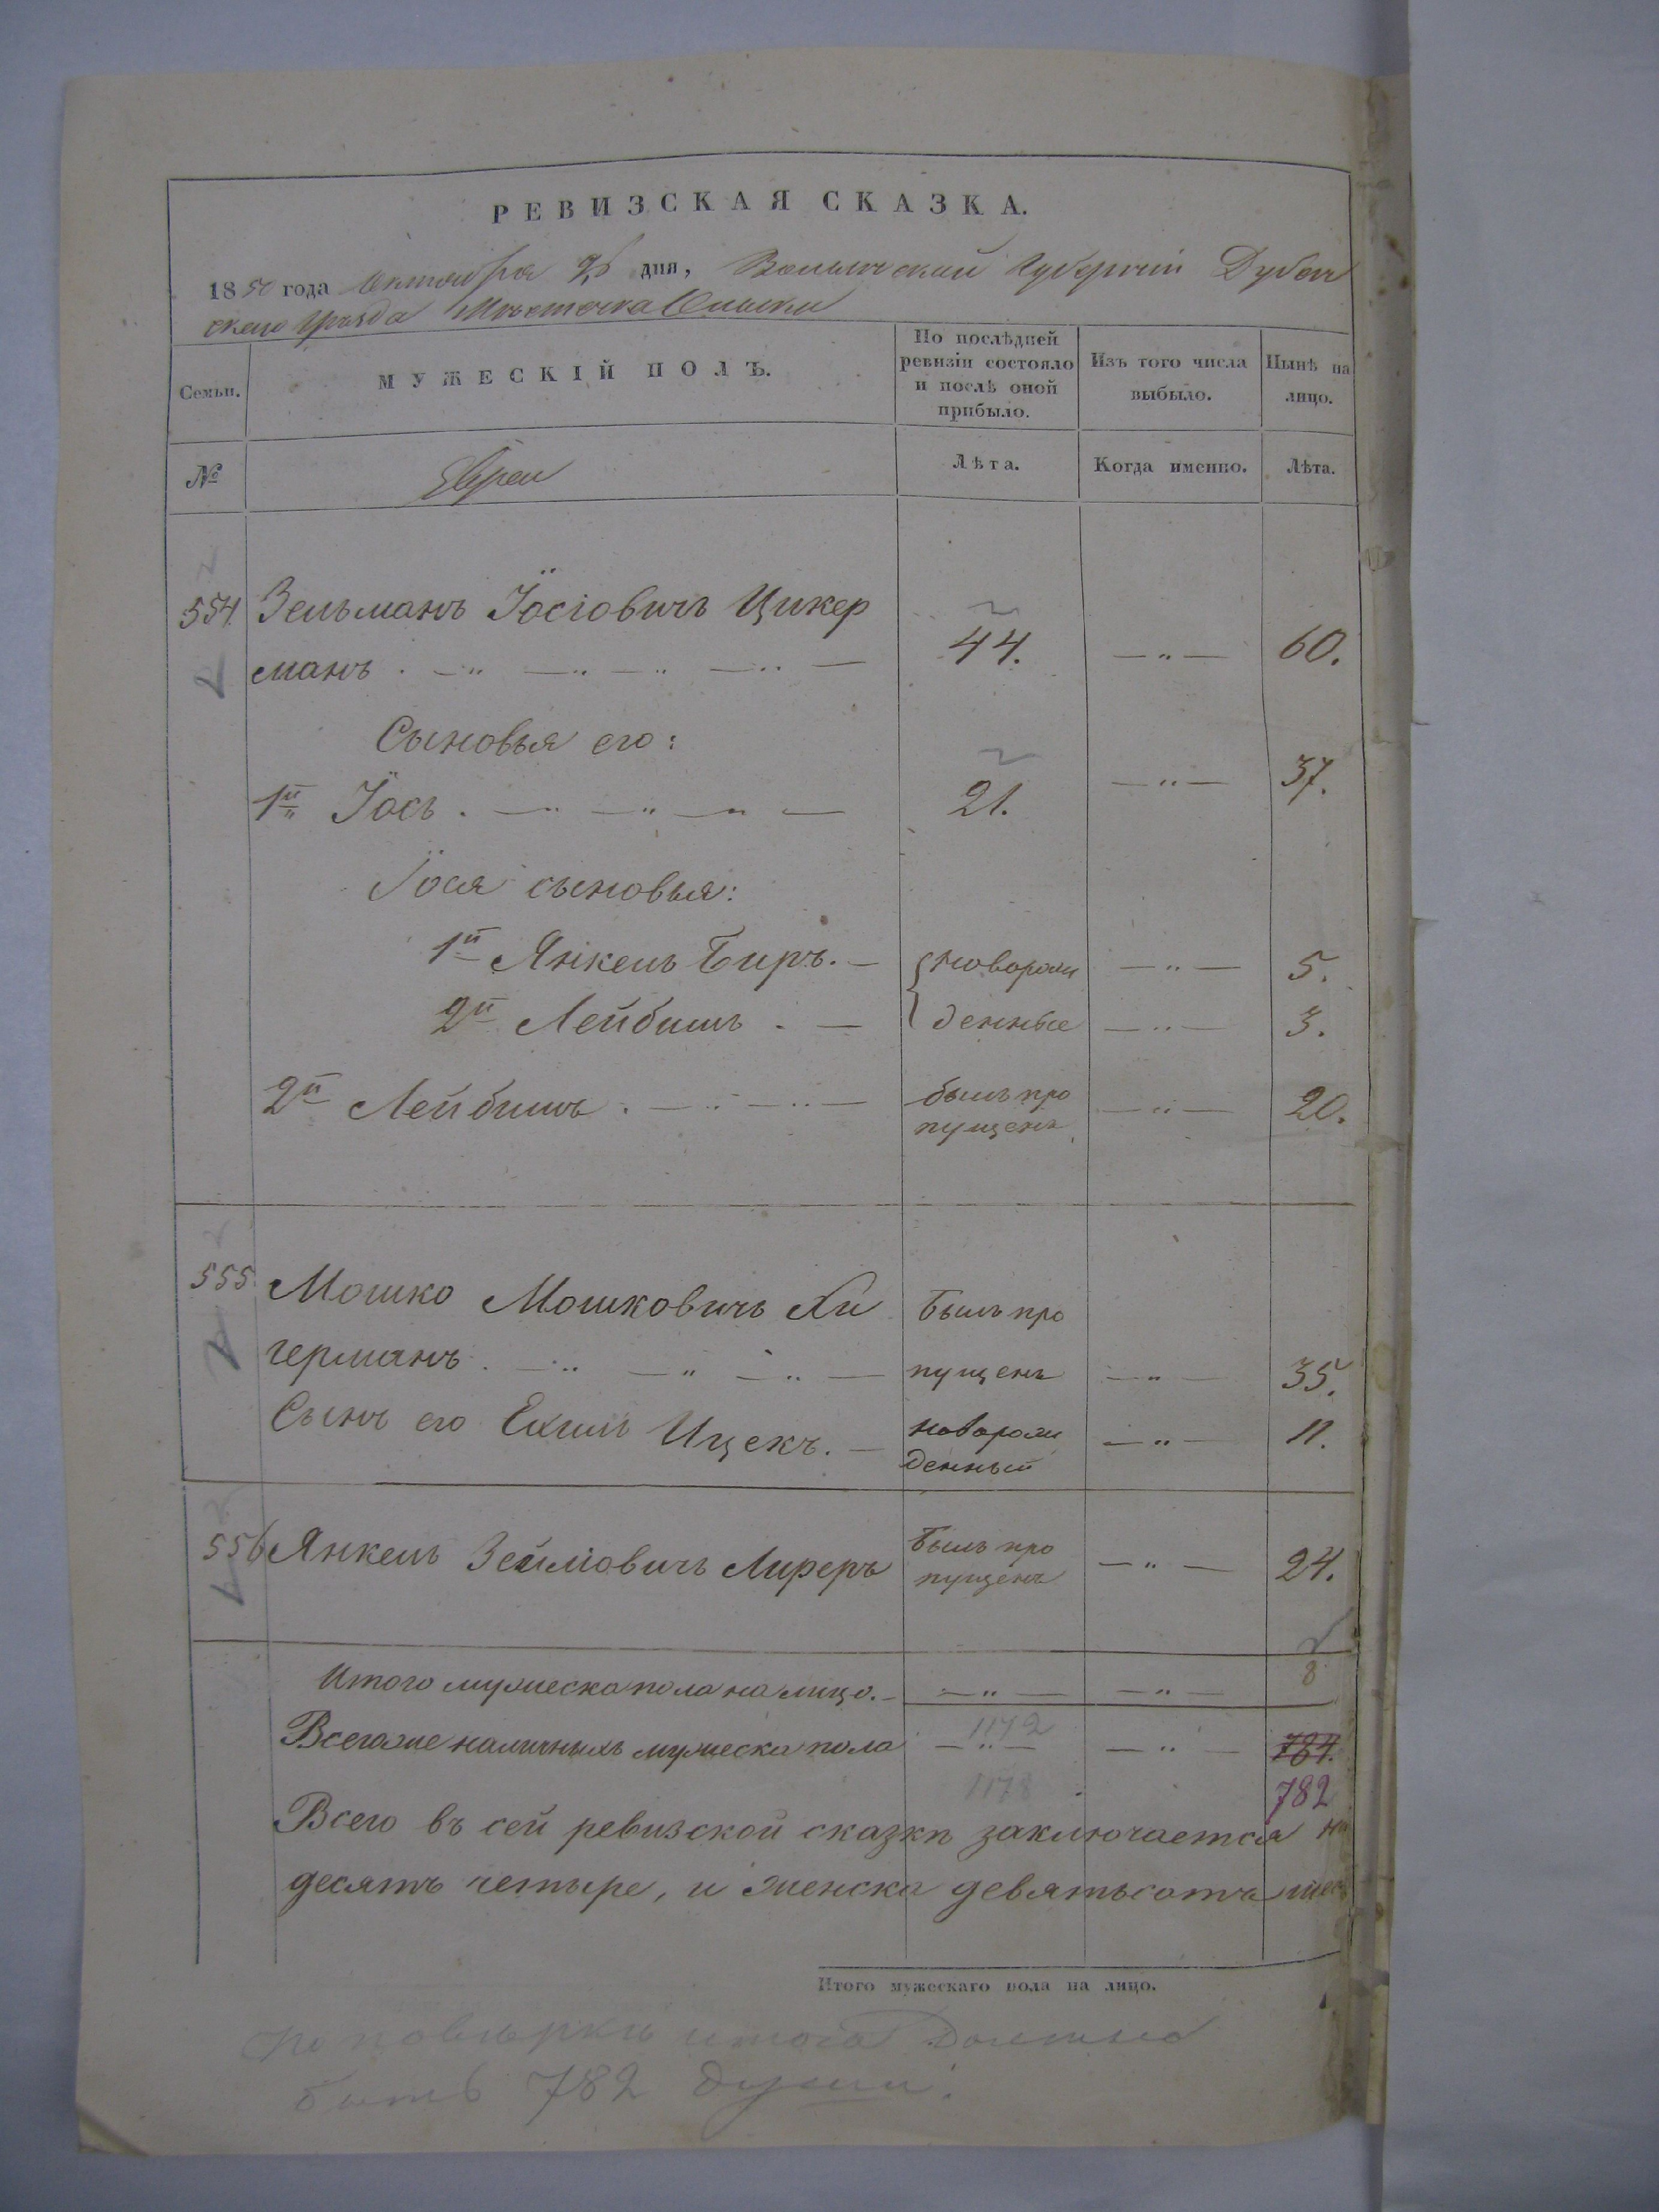 РЕВИЗСКАЯ СКАЗКА.
1850 года Октября 25 дня, Волынской Губерніи Дубен
скаго Уѣзда Мѣстечка Олыки
Семьи. МУЖЕСКІЙ ПОЛЪ. По послѣдней ревизіи состояло и послѣ оной прибыло. Изъ того числа выбыло. Нынѣ на лицо.
№ Евреи Лѣта. Когда именно. Лѣта.
554 Зельманъ Іосіовичъ Цикер
манъ . — „ — „ — „ — „ — 44. — „ — 60.
Сыновья его:
1й Іось . — „ — „ — „ — 21. — „ — 37.
Іося сыновья:
1й Янкель Биръ. — новорож — „ — 5.
2й Лейбишъ . — денные — „ — 3.
2й Лейбишъ . — „ — „ — былъ про
пущенъ — „ — 20.
555 Мошко Мошковичъ Хи былъ про
германъ . — „ — „ — „ — пущенъ — „ — 35.
Сынъ его Ехилъ Ицекъ. — новорож
денный — „ — 11.
556 Янкель Зейліовичъ Лиреръ былъ про
пущенъ — „ — 24.
Итого мужеска пола на лицо. — — „ — — „ — 8
Всегоже наличныхъ мужеска пола 1172 — „ — — „ — 784.
1178 782
Всего въ сей ревизской сказкѣ заключается на
десять четыре, и женска девятьсотъ шес
Итого мужескаго пола на лицо.
По повѣркѣ итога должно
быть 782 души.